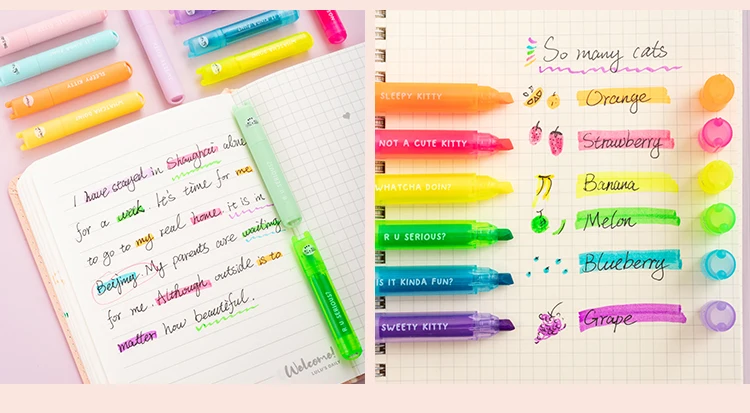 SLEEPY KITTY
I have stayed in Shanghai alone
for a week. It's time for me
to go to my real home. it is m
Beijing. My parents are waiting
for me. Although outside is to
matter how beautiful.
R U SERIOUS?
Welcome!
LULU'S DAILY
So many cats
SLEEPY KITTY
Orange
NOT A CUTE KITTY
Strawberry
WHATCHA DOIN?
Banana
R U SERIOUS?
Melon
IS IT KINDA FUN?
Blueberry
SWEETY KITTY
Grape